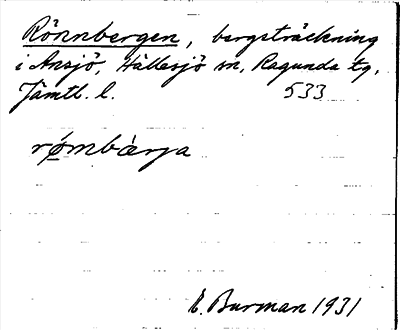 Rönnbergen, bergsträckning
i Ansjö, Hällesjö sn, Ragunda tg,
Jämtl. l. 533
rǿmbæ̀rja
E. Burman 1931